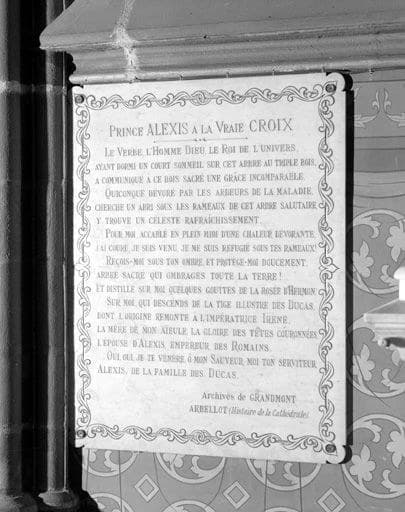 PRINCE ALEXIS A LA VRAIE CROIX
LE VERBE, L'HOMME DIEU LE ROI DE L'UNIVERS,
AYANT DORMI UN COURT SOMMEIL SUR CET ARBRE AU TRIPLE BOIS,
A COMMUNIQUÉ A CE BOIS SACRÉ UNE GRÂCE INCOMPARABLE.
QUICONQUE DÉVORÉ PAR LES ARDEURS DE LA MALADIE,
CHERCHE UN ABRI SOUS LES RAMEAUX DE CET ARBRE SALUTAIRE
Y TROUVE UN CÉLESTE RAFRAÎCHISSEMENT.
POUR MOI, ACCABLÉ EN PLEIN MIDI D'UNE CHALEUR DÉVORANTE,
J'AI COURU, JE SUIS VENU, JE ME SUIS RÉFUGIÉ SOUS TES RAMEAUX!
REÇOIS-MOI SOUS TON OMBRE, ET PROTÈGE-MOI DOUCEMENT,
ARBRE SACRÉ QUI OMBRAGES TOUTE LA TERRE!
ET DISTILLE SUR MOI QUELQUES GOUTTES DE LA ROSÉE D'HERMON.
SUR MOI, QUI DESCENDS DE LA TIGE ILLUSTRE DES DUCAS,
DONT L'ORIGINE REMONTE A L'IMPÉRATRICE IRÈNE,
LA MÈRE DE MON AÏEULE, LA GLOIRE DES TÊTES COURONNÉES
L'ÉPOUSE D'ALEXIS, EMPEREUR DES ROMAINS.
OUI, OUI, JE TE VÉNÈRE, Ô MON SAUVEUR, MOI TON SERVITEUR
ALEXIS, DE LA FAMILLE DES DUCAS.
Archives de GRANDMONT
ARBELLOT (Histoire de la Cathédrale)